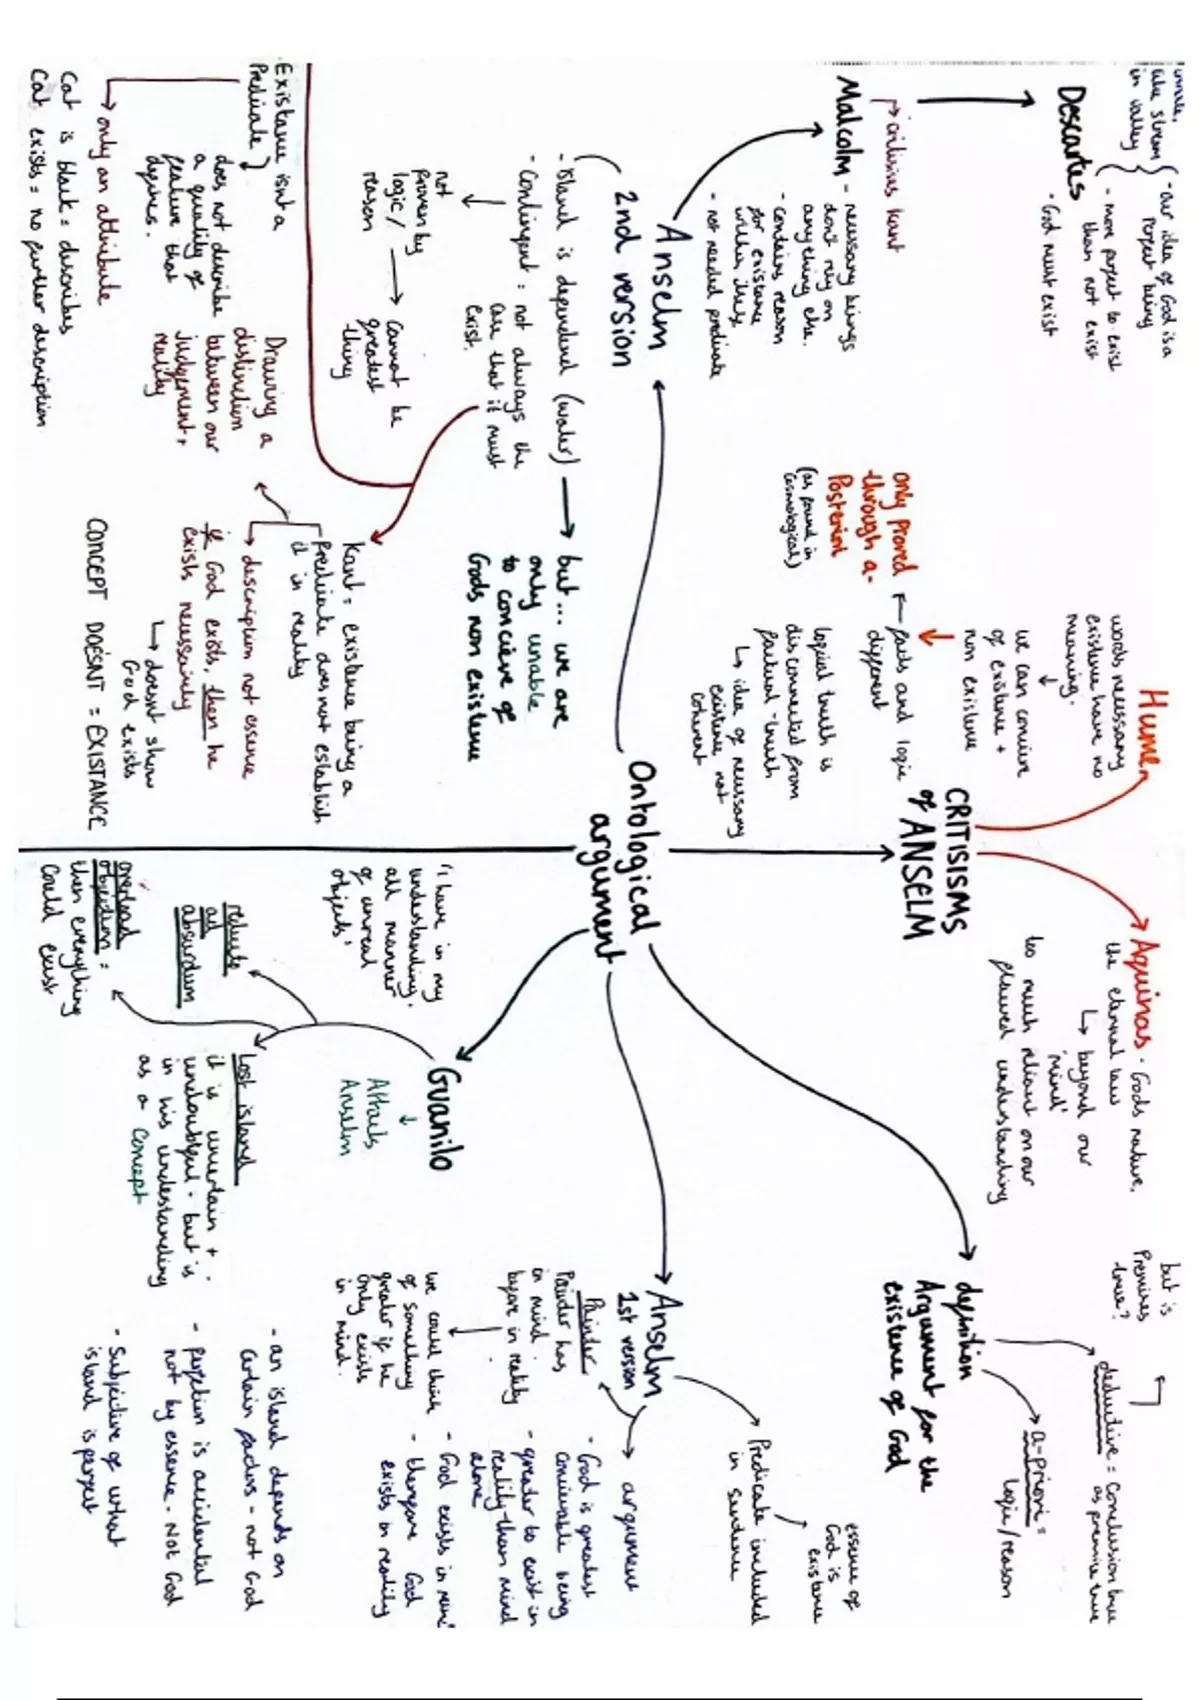 Ontological
argument
Anselm
2nd version
- island is dependend (water)
- Contingent = not always the
case that it must
exist.
not
proven by
logic/
reason
cannot be
greatest
thing
but... we are
only unable
to concieve of
Gods non existence
Malcolm - necessary beings
don't rely on
anything else.
- contains reason
for existence
within itself
- not needed predicate
criticises Kant
Descartes
innate,
like stream
in valley
- our idea of God is a
perfect being
- more perfect to exist
than not exist
- God must exist
Kant = existence being a
predicate does not establish
it in reality
description not essence
if God exists, then he
exists necessarily
doesnt show
God exists
CONCEPT DOESNT = EXISTANCE
Drawing a
distinction
between our
judgement +
reality
- Existance isnt a
Predicate
does not describe
a quality of
feature that
defines.
only an attribute
Cat is black = describes
Cat exists = no further description
CRITISISMS
of ANSELM
Hume
words necessary
existence have no
meaning.
we can concive
of existence +
non existence
facts and logic
different
only proved
through a-
Posteriori
(as found in
cosmological)
logical truth is
disconnected from
factual truth
idea of necessary
existence not
coherent
Aquinas - Gods nature,
the eternal law
beyond our
'mind'
too much reliant on our
flawed understanding
definition
Argument for the
existence of God
deductive = Conclusion true
as premise true
but is
Premises
true?
a-priori =
logic/reason
Anselm
1st version
Predicate included
in sentence
essence of
God is
existence
argument
- God is greatest
conceivable being
- greater to exist in
reality than mind
alone
- God exists in mind
- therefore God
exists in reality
Painter
Painter has
in mind
before in reality
we could think
of something
greater if he
only exists
in mind.
Guanilo
Attacks
Anselm
"I have in my
understanding,
all manner
of unreal
objects'
reducto
ad
absurdum
overload
objection =
then everything
could exist
Lost island
it is uncertain +
undoubtful - but is
in his understanding
as a concept
- an island depends on
certain factors - not God
- perfection is accidental
not by essence - Not God
- Subjective of what
island is perfect